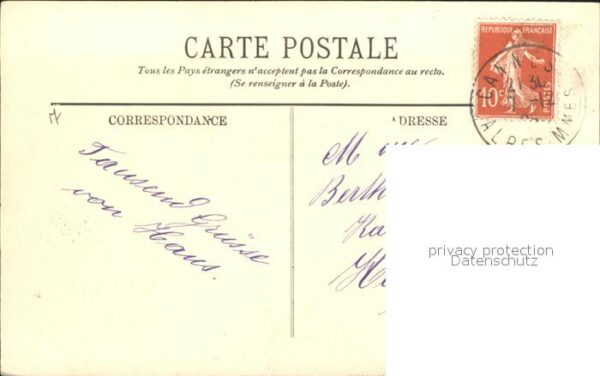 CARTE POSTALE
Tous les Pays étrangers n'acceptent pas la Correspondance au recto.
(Se renseigner à la Poste).
REPUBLIQUE FRANÇAISE
10c
POSTES
CANNES
ALPES MMES
CORRESPONDANCE
ADRESSE
Tausend Grüsse
von Hans.
Berth
Ka
privacy protection
Datenschutz